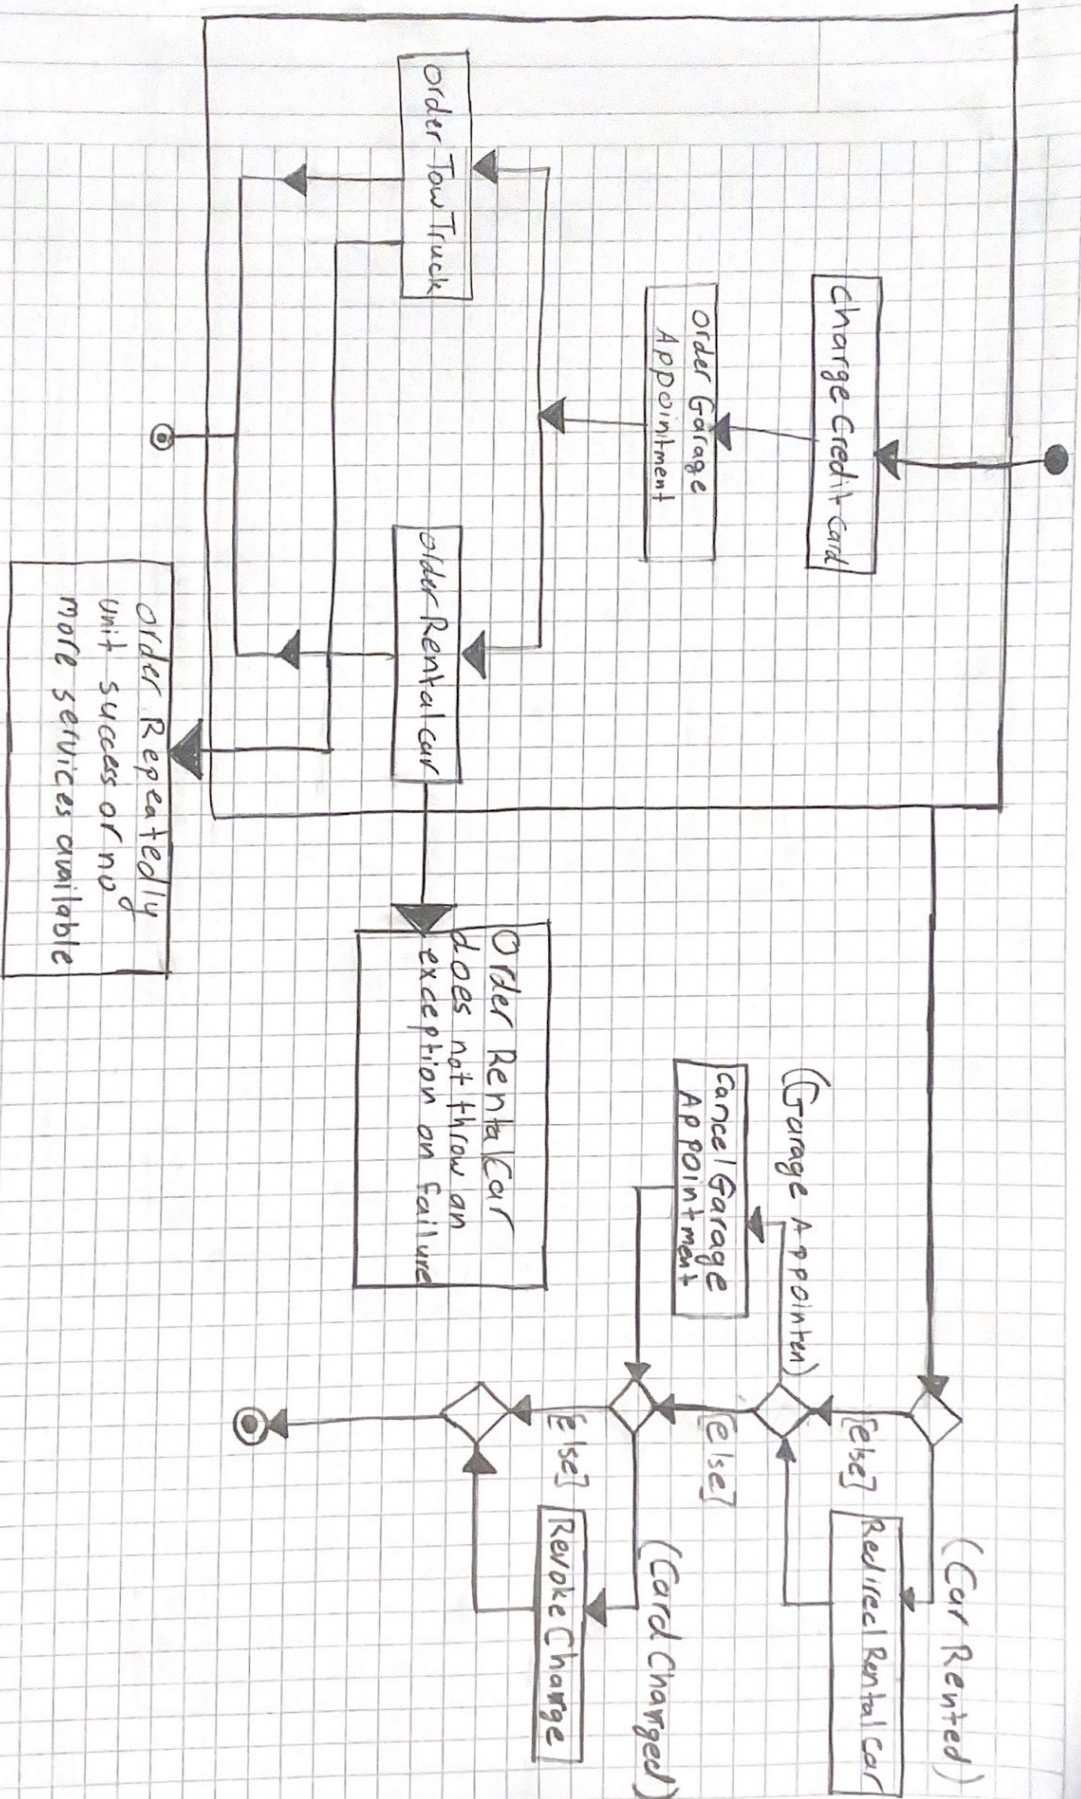 ChargeCreditCard
Order Garage
Appoinitment
Order Tow Truck
Order Rentalcar
Order Repeatedly
unit success or no
more services available
Order RentalCar
does not throw an
exception on failure
(Car Rented)
Redirect Rental Car
[else]
(Garage Appointen)
Cancel Garage
Appointment
[else]
(Card Charged)
Revoke Charge
[else]